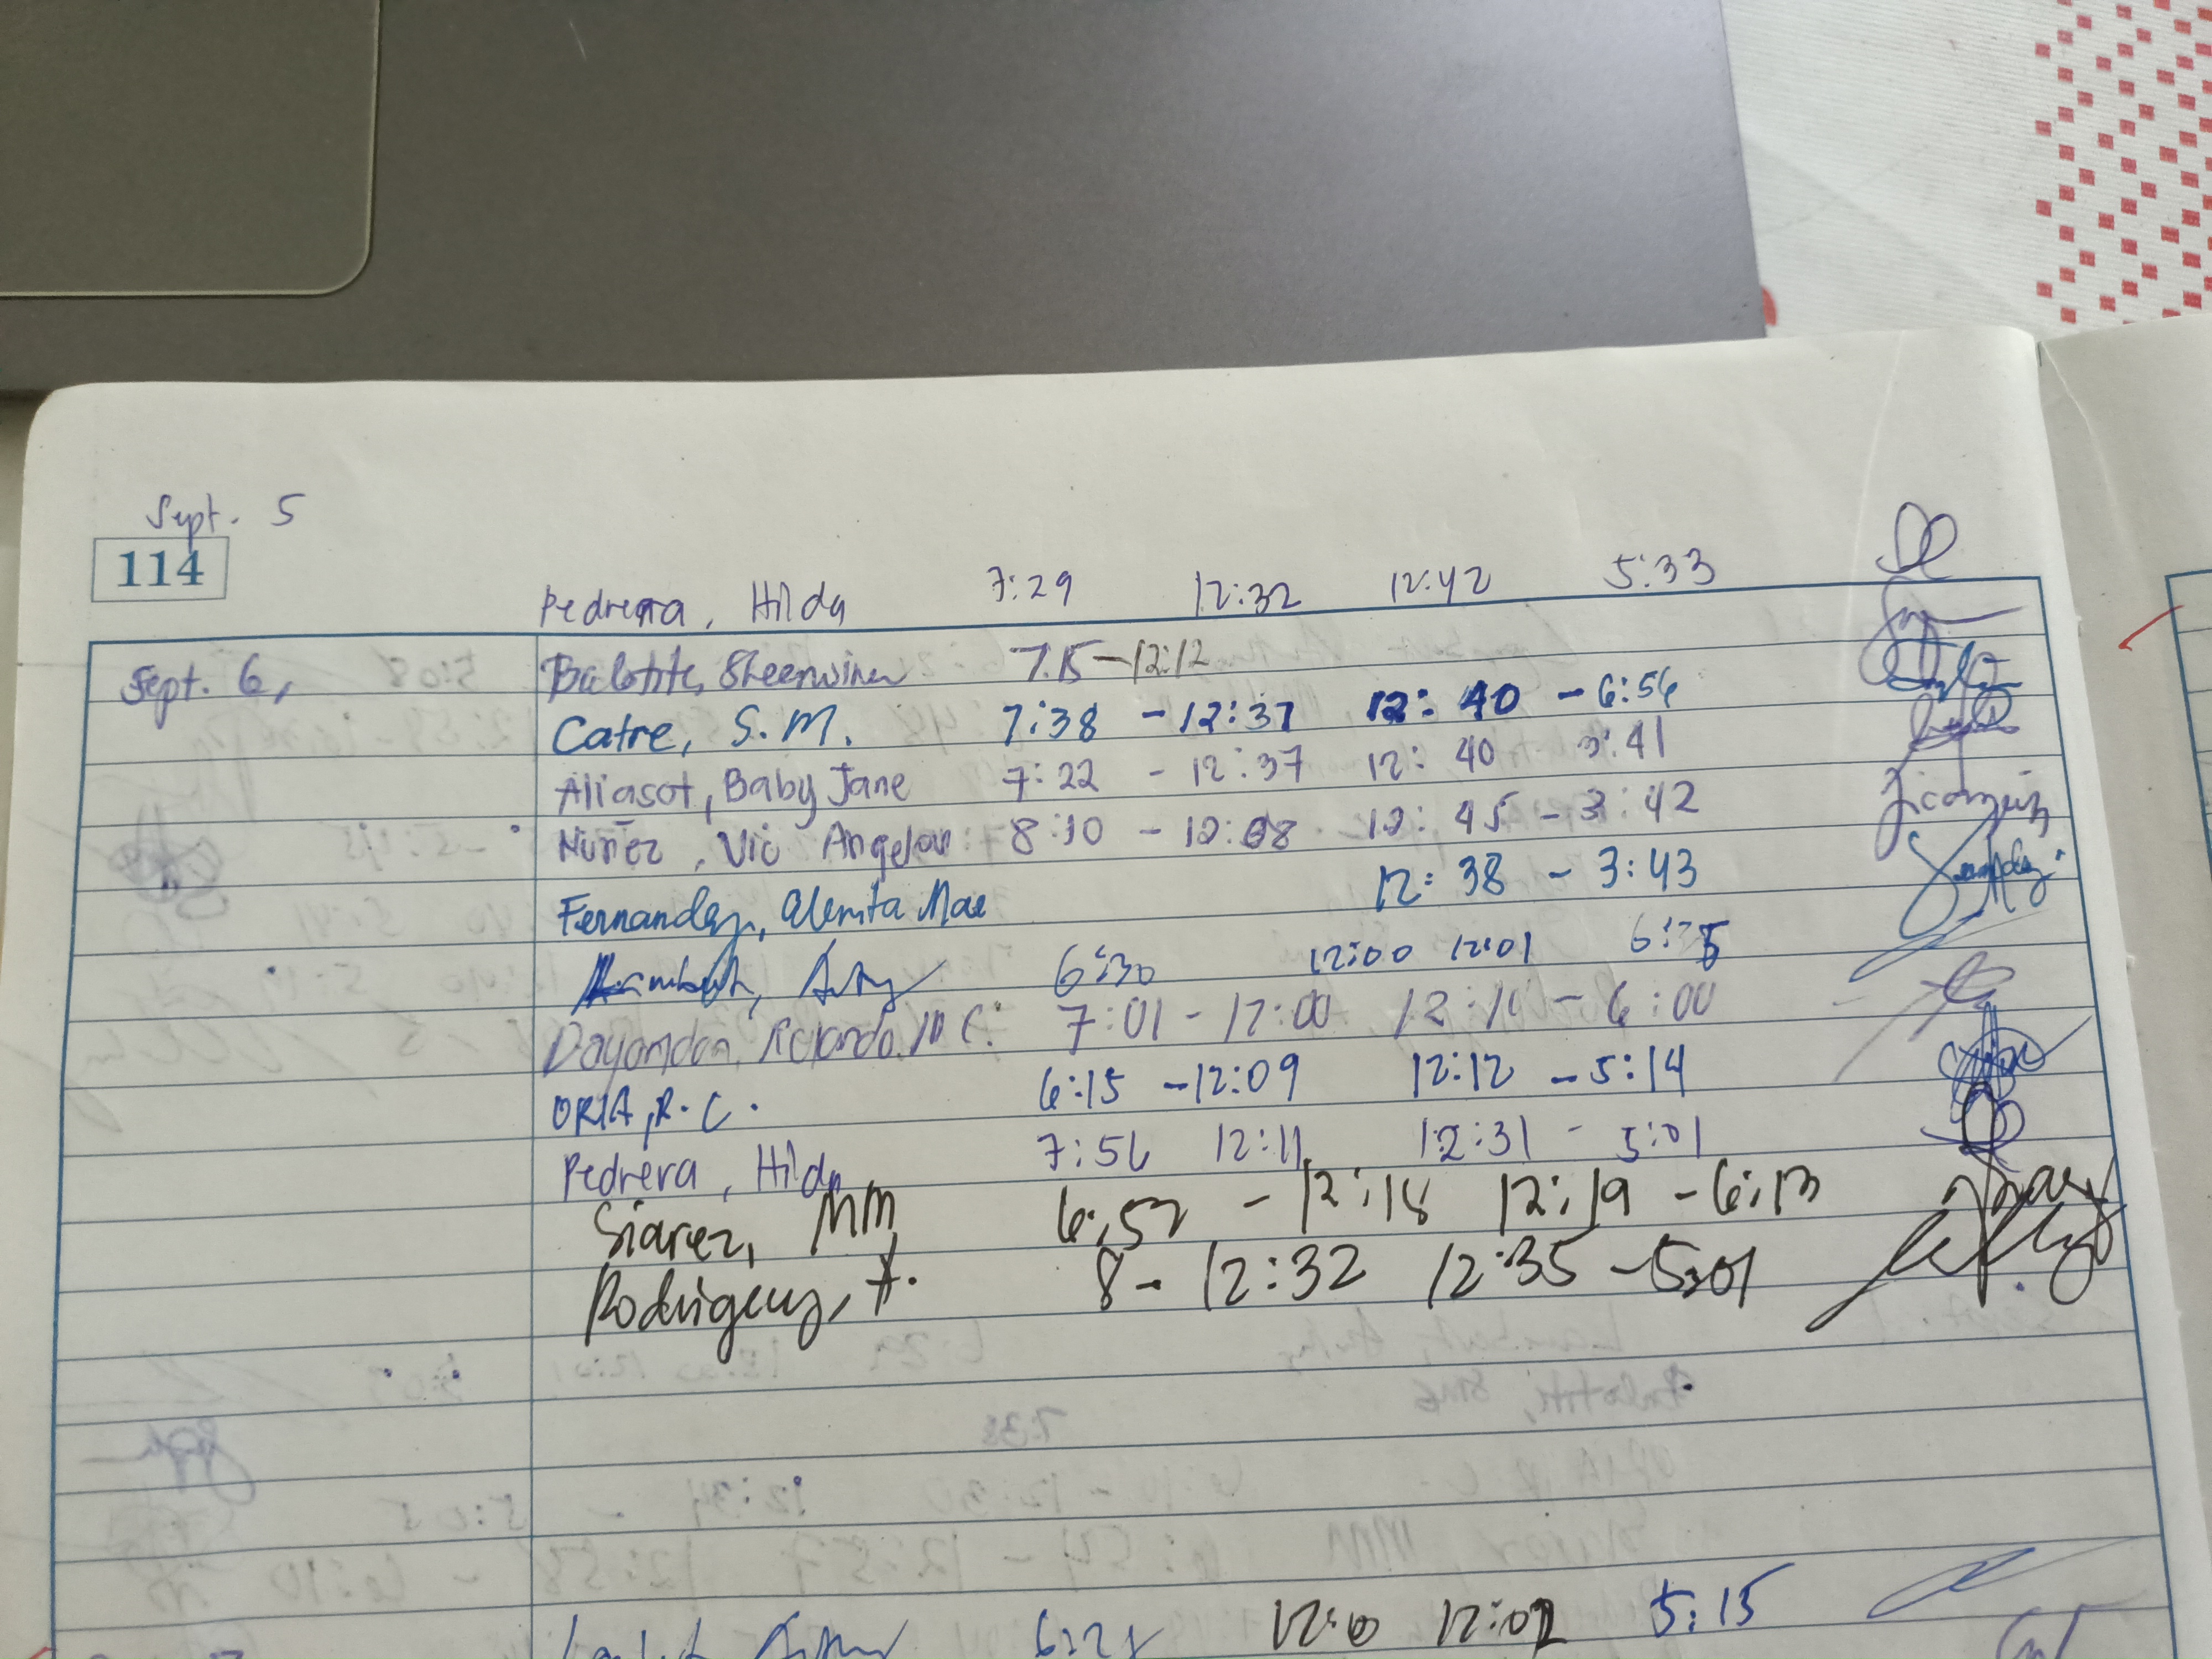 Sept. 5
114
Pedrera, Hilda 7:29 12:32 12:42 5:33
Sept. 6, 7:15 - 12:12
Catre, S.M. 7:38 - 12:37 12:40 - 6:56
Aliasot, Baby Jane 7:22 - 12:37 12:40 3:41
Nuñez, Vic Angelou 8:10 - 12:08 12:45 - 3:42
Fernandez, Mae 12:38 - 3:43
6:30 12:00 12:01
7:01 - 12:00 12:11 - 6:00
ORIA, R.C. 6:15 - 12:09 12:12 - 5:14
Pedrera, Hilda 7:56 12:11 12:31 - 5:01
Siarez, MM 6:52 - 12:18 12:19 - 6:13
Rodriguez, A. 8 - 12:32 12:35 - 5:01
12:02 5:15